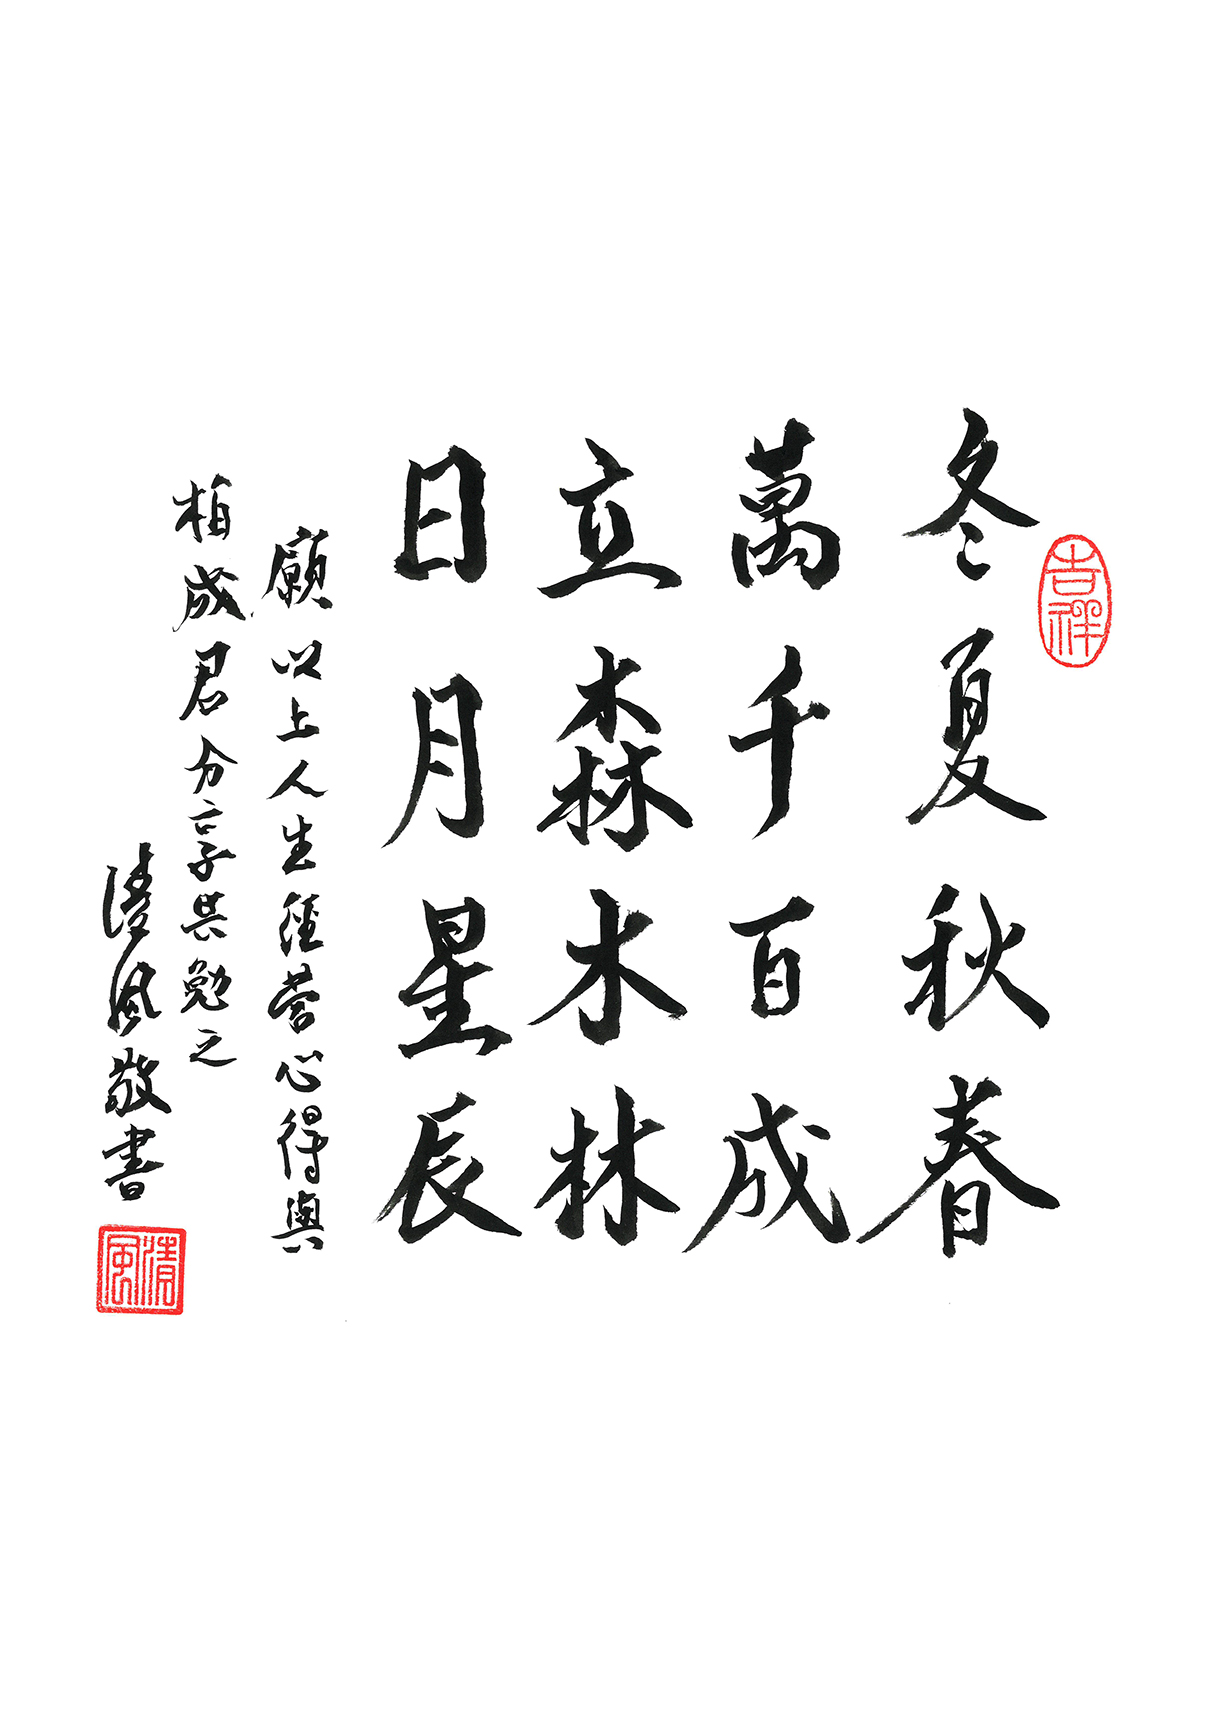 吉祥
冬夏秋春
萬千百成
立森木林
日月星辰
願以上人生經營心得與
柏成君分享共勉之
清風敬書
清風